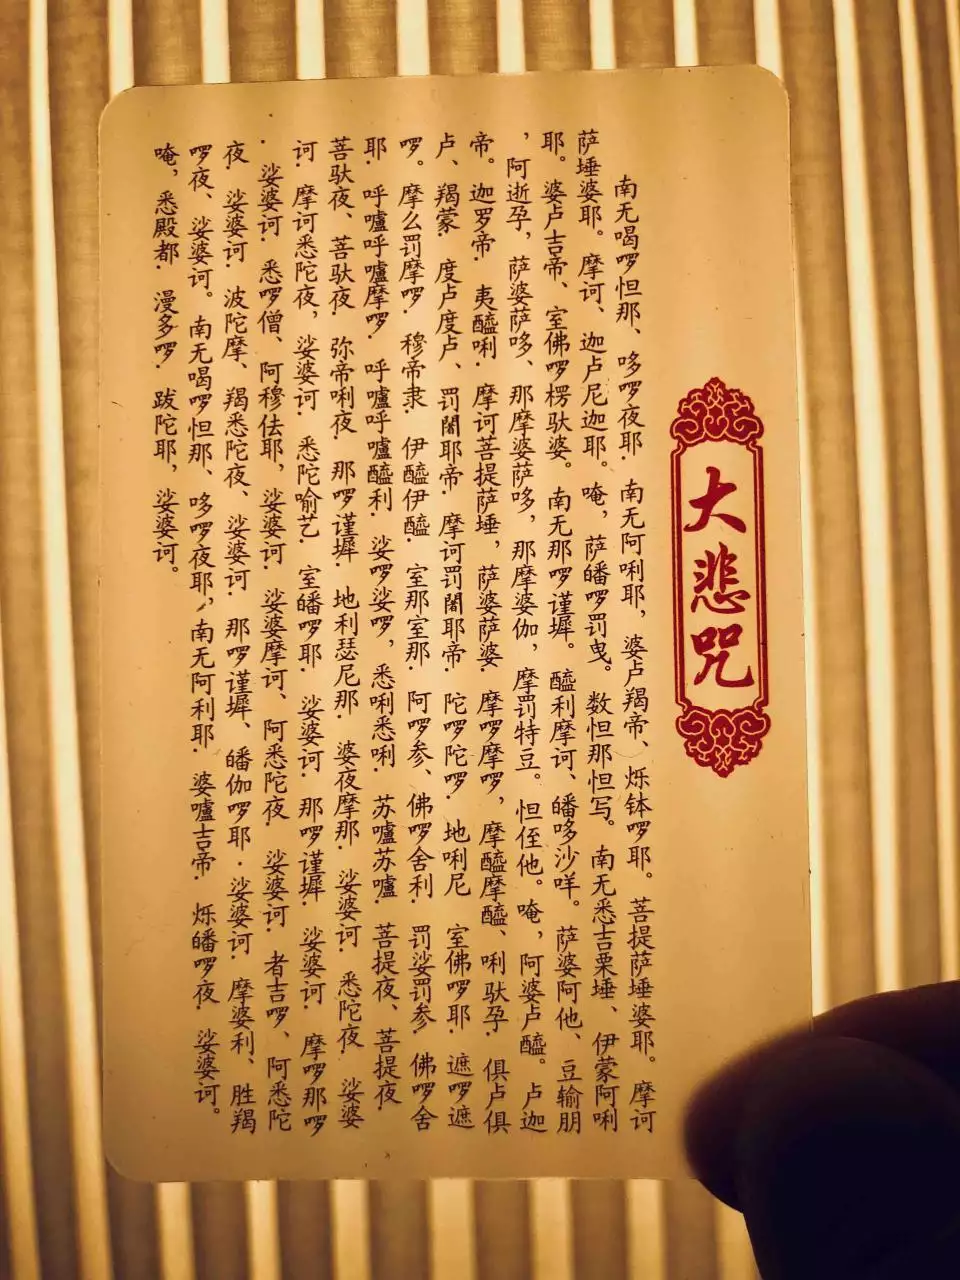 大悲咒
南无喝啰怛那、哆啰夜耶·南无阿唎耶，婆卢羯帝、烁钵啰耶。菩提萨埵婆耶。摩诃
萨埵婆耶。摩诃、迦卢尼迦耶。唵，萨皤啰罚曳。数怛那怛写。南无悉吉栗埵、伊蒙阿唎
耶。婆卢吉帝、室佛啰楞驮婆。南无那啰谨墀。醯利摩诃、皤哆沙咩。萨婆阿他、豆输朋
，阿逝孕，萨婆萨哆、那摩婆萨哆，那摩婆伽，摩罚特豆。怛侄他。唵，阿婆卢醯。卢迦
帝。迦罗帝·夷醯唎·摩诃菩提萨埵，萨婆萨婆·摩啰摩啰，摩醯摩醯、唎驮孕·俱卢俱
卢、羯蒙·度卢度卢、罚闍耶帝·摩诃罚闍耶帝·陀啰陀啰·地唎尼·室佛啰耶·遮啰遮
啰。摩么罚摩啰·穆帝隶·伊醯伊醯·室那室那·阿啰参、佛啰舍利·罚娑罚参·佛啰舍
耶·呼嚧呼嚧摩啰·呼嚧呼嚧醯利·娑啰娑啰，悉唎悉唎·苏嚧苏嚧·菩提夜、菩提夜·
菩驮夜、菩驮夜·弥帝唎夜·那啰谨墀·地利瑟尼那·婆夜摩那·娑婆诃·悉陀夜·娑婆
诃·摩诃悉陀夜，娑婆诃·悉陀喻艺·室皤啰耶·娑婆诃·那啰谨墀·娑婆诃·摩啰那啰
·娑婆诃·悉啰僧、阿穆佉耶，娑婆诃·娑婆摩诃、阿悉陀夜·娑婆诃·者吉啰、阿悉陀
夜·娑婆诃·波陀摩、羯悉陀夜、娑婆诃·那啰谨墀、皤伽啰耶·娑婆诃·摩婆利、胜羯
啰夜、娑婆诃。南无喝啰怛那、哆啰夜耶，南无阿利耶·婆嚧吉帝·烁皤啰夜·娑婆诃。
唵，悉殿都·漫多啰·跋陀耶，娑婆诃。